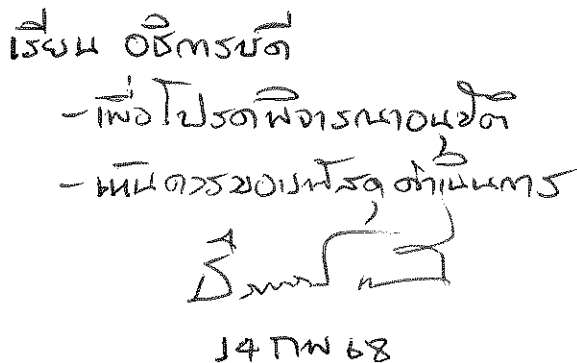 เรียน อธิการบดี
- เพื่อโปรดพิจารณาอนุมัติ
- เห็นควรมอบพัสดุ ดำเนินการ
14 กพ 68